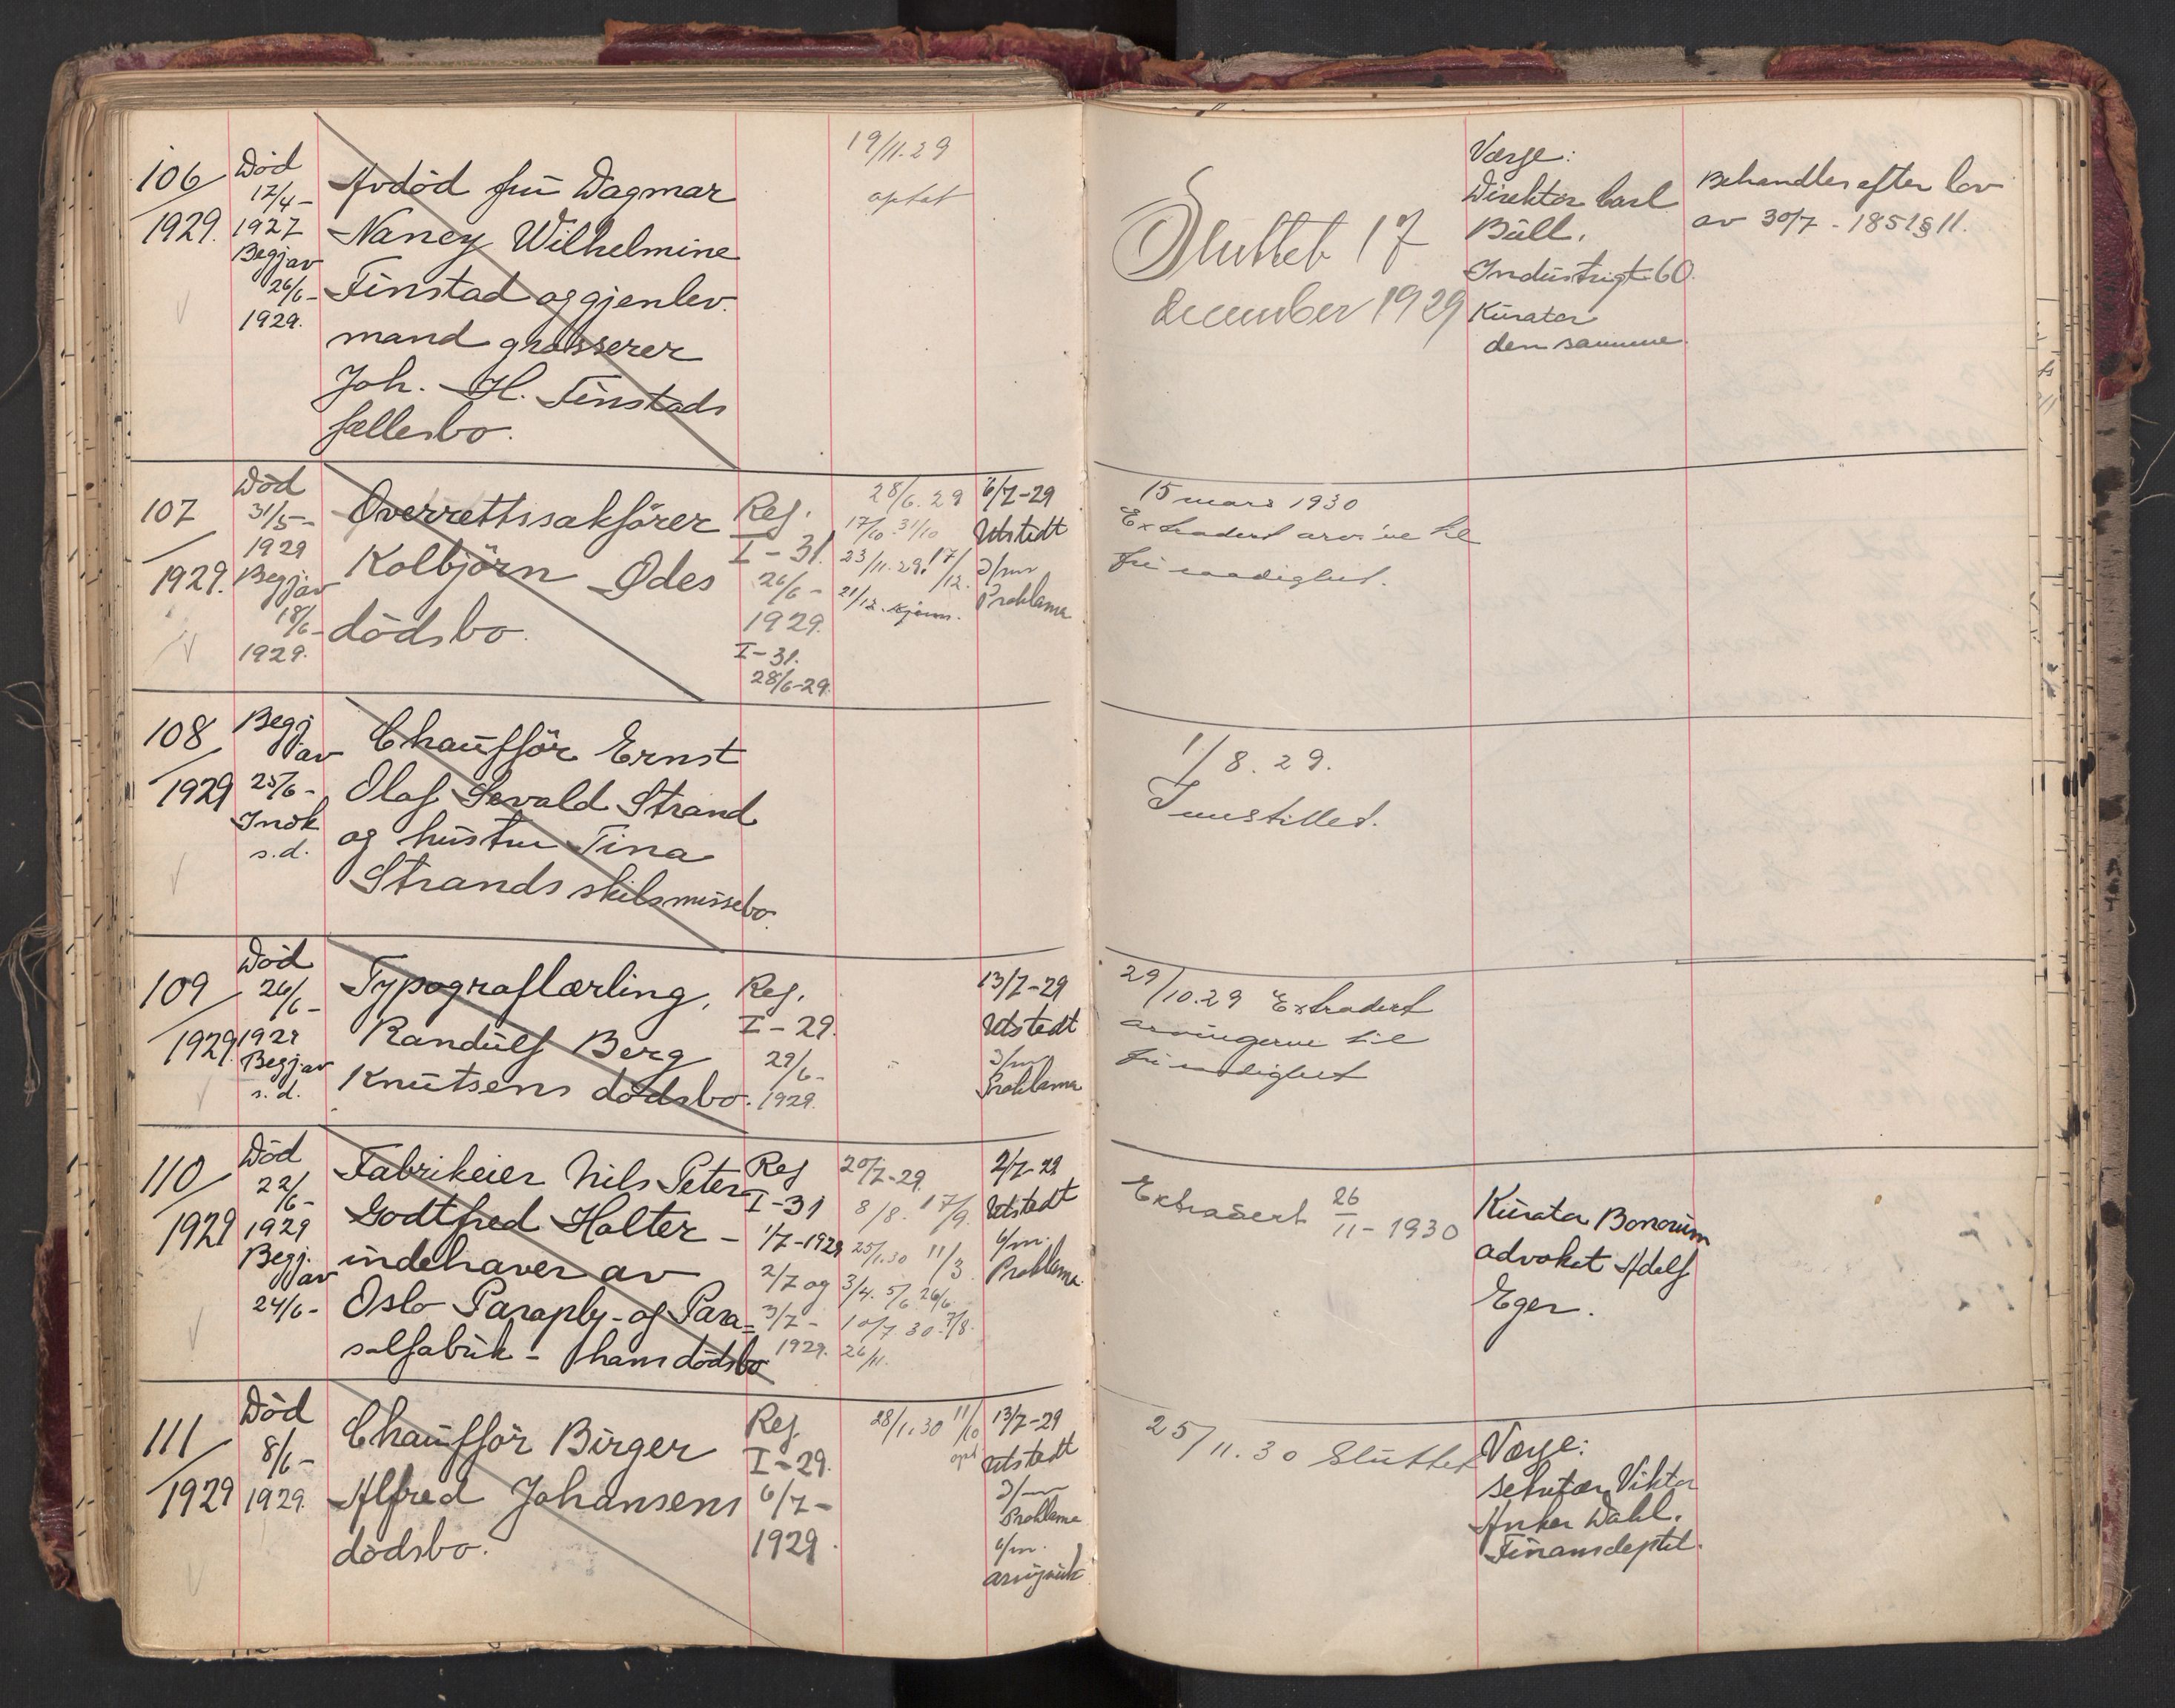 106
1929.
Död
17/4-
1927
Begj av
26/6-
1929.
Avdöd frü Dagmar
Nancy Wilhelmine
Finstad og gjenlev.
mand grosserer
Joh. H. Finstads
fællesbo.
19/11.29
optat
Sluttet 17
december 1929
Værge:
Direktör Carl
Büll.
Industrigt 60.
Kürator
den samme.
Behandles efter lov
av 30/7 - 1851 § 11.
107
1929.
Död
31/5-
1929
Begj av
18/6-
1929.
Overrettssakförer
Kolbjörn Ødes
dödsbo.
Reg.
I-31.
26/6-
1929.
I-31.
28/6-29.
28/6.29
17/10. 31/10
23/11.29. 17/12.
21/12. kjenn.
6/7-29
Utstedt
3/mn
Proklama
15 mars 1930
Extradert arvine til
fri raadighet.
108
1929
Begj
av
25/6-
Indk
s.d.
Chaufför Ernst
Olaf Sevald Strand
og hüstru Tina
Strands skilsmissebo.
1/8.29.
Innstillet.
109
1929.
Död
26/6-
1929
Begj av
s.d.
Typograflærling,
Randülf Berg
Knütsens dödsbo.
Reg.
I-29.
29/6-
1929.
13/7-29
Utstedt
3/mn
Proklama
29/10.29 Extradert
arvingerne til
fri raadighet
110
1929
Död
22/6-
1929
Begj.
av
24/6-
Fabrikeier Nils Peter
Godtfred Holter -
indehaver av
Oslo Paraply- og Para=
solfabrik - hans dödsbo
Reg
I-31
1/7-1929
2/7 og
3/7-
1929.
20/7-29.
8/8. 17/9.
25/1.30 11/3
3/4. 5/6 26/6
10/7 30. 7/8.
26/11.
2/7-29
Utstedt
6/mn.
Proklama.
Extradert 26/11-1930
Kürator Bonorüm
advokat Adolf
Eger.
111
1929
Död
8/6-
1929.
Chaufför Birger
Alfred Johansens
dödsbo.
Reg
I-29.
6/7-
1929.
28/1.30 11/10
opt
13/7-29
Utstedt
3/mn
Proklama
6/mn.
25/11.30 Slüttet
Værge:
sekretær Viktor
Anker Dahl.
Finansdeptet.